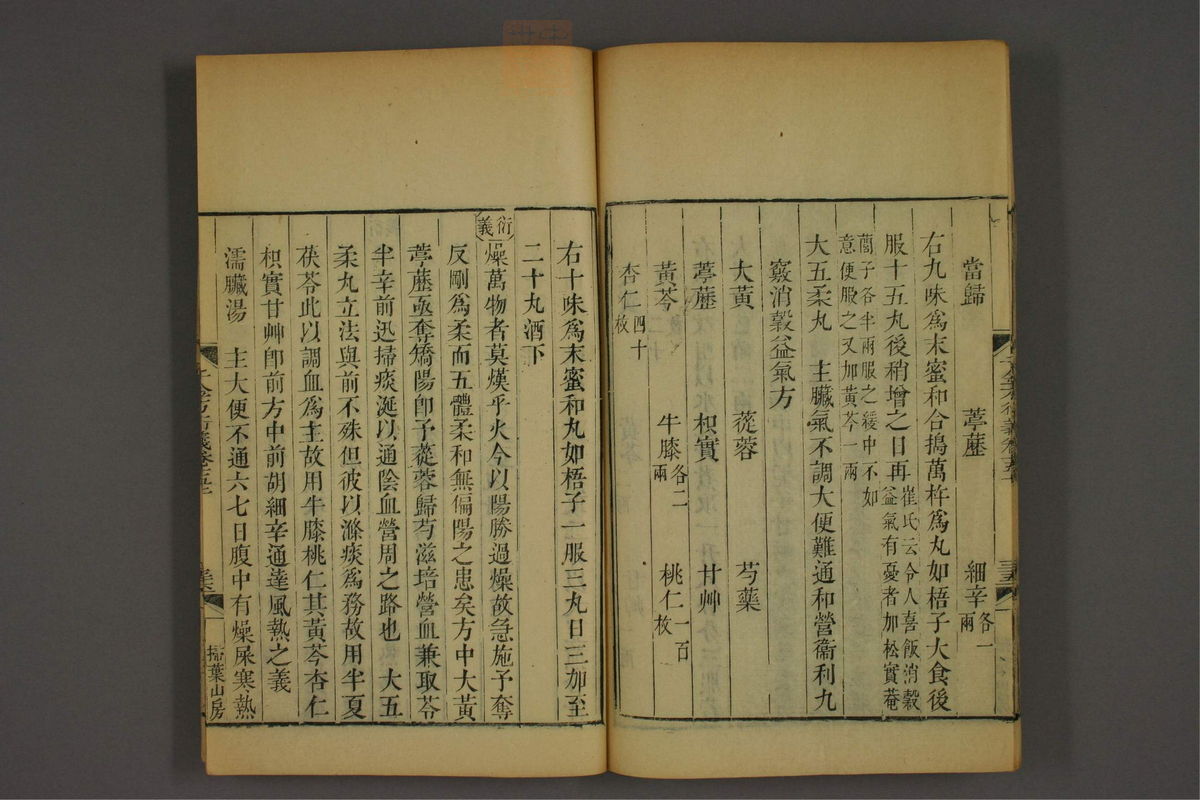 當歸 葶藶 細辛各一兩
右九味爲末蜜和合搗萬杵爲丸如梧子大食後
服十五丸後稍增之日再崔氏云令人喜飯消穀益氣有憂者加松實菴
䕡子各半兩服之緩中不如意便服之又加黃芩一兩
大五柔丸 主臟氣不調大便難通和營衞利九
竅消穀益氣方
大黃 蓯蓉 芍藥
葶藶 枳實 甘艸
黃芩 牛膝各二兩 桃仁一百枚
杏仁四十枚
右十味爲末蜜和丸如梧子一服三丸日三加至
二十丸酒下
衍義 燥萬物者莫熯乎火今以陽勝過燥故急施予奪
反剛爲柔而五體柔和無偏陽之患矣方中大黃
葶藶亟奪矯陽卽予蓯蓉歸芍滋培營血兼取苓
半辛前迅掃痰涎以通陰血營周之路也 大五
柔丸立法與前不殊但彼以滌痰爲務故用半夏
茯苓此以調血爲主故用牛膝桃仁其黃芩杏仁
枳實甘艸卽前方中前胡細辛通達風熱之義
濡臟湯 主大便不通六七日腹中有燥屎寒熱
掃葉山房